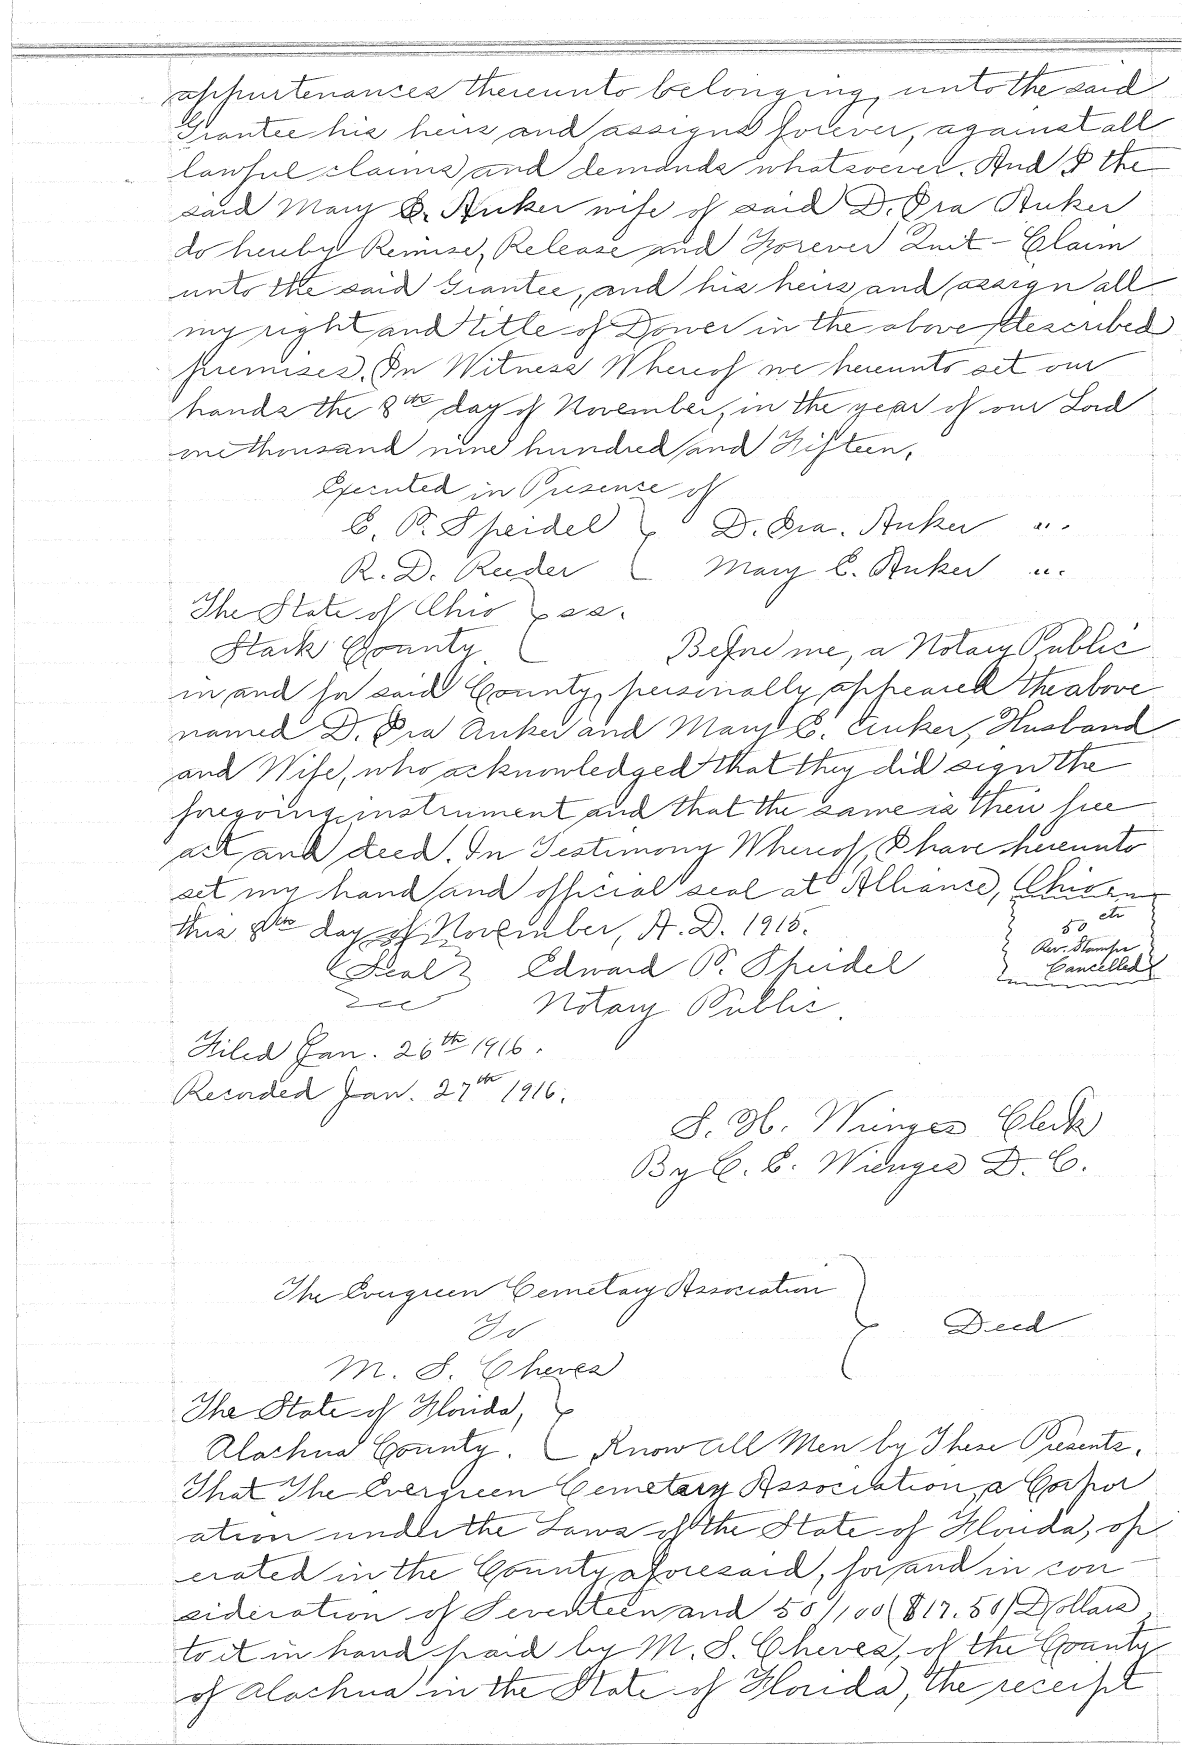 appurtenances thereunto belonging, unto the said
Grantee his heirs and assigns forever, against all
lawful claims and demands whatsoever. And I the
said Mary E. Auker wife of said D. Ira Auker
do hereby Remise, Release and Forever Quit-Claim
unto the said Grantee, and his heirs and assign all
my right and title of Dower in the above described
premises. In Witness Whereof we hereunto set our
hands the 8th day of November, in the year of our Lord
one thousand nine hundred and Fifteen.
Executed in Presence of
E. P. Speidel } D. Ira. Auker "."
R. D. Reeder { Mary E. Auker "."
The State of Ohio } ss.
Stark County { Before me, a Notary Public
in and for said County, personally appeared the above
named D. Ira Auker and Mary E. Auker, Husband
and Wife, who acknowledged that they did sign the
foregoing instrument and that the same is their free
act and deed. In Testimony Whereof, I have hereunto
set my hand and official seal at Alliance, Ohio
this 8th day of November, A. D. 1915.
50 cts
Rev. Stamps
Cancelled
(Seal) Edward P. Speidel
Notary Public.
Filed Jan. 26th 1916.
Recorded Jan. 27th 1916.
S. H. Wienges Clerk
By C. E. Wienges D. C.
The Evergreen Cemetary Association
To } Deed
M. S. Cheves
The State of Florida, }
Alachua County. { Know all Men by These Presents.
That The Evergreen Cemetary Association, a Corpor
ation under the Laws of the State of Florida, op
erated in the County aforesaid, for and in con
sideration of Seventeen and 50/100 ($17.50) Dollars
to it in hand paid by M. S. Cheves, of the County
of Alachua in the State of Florida, the receipt